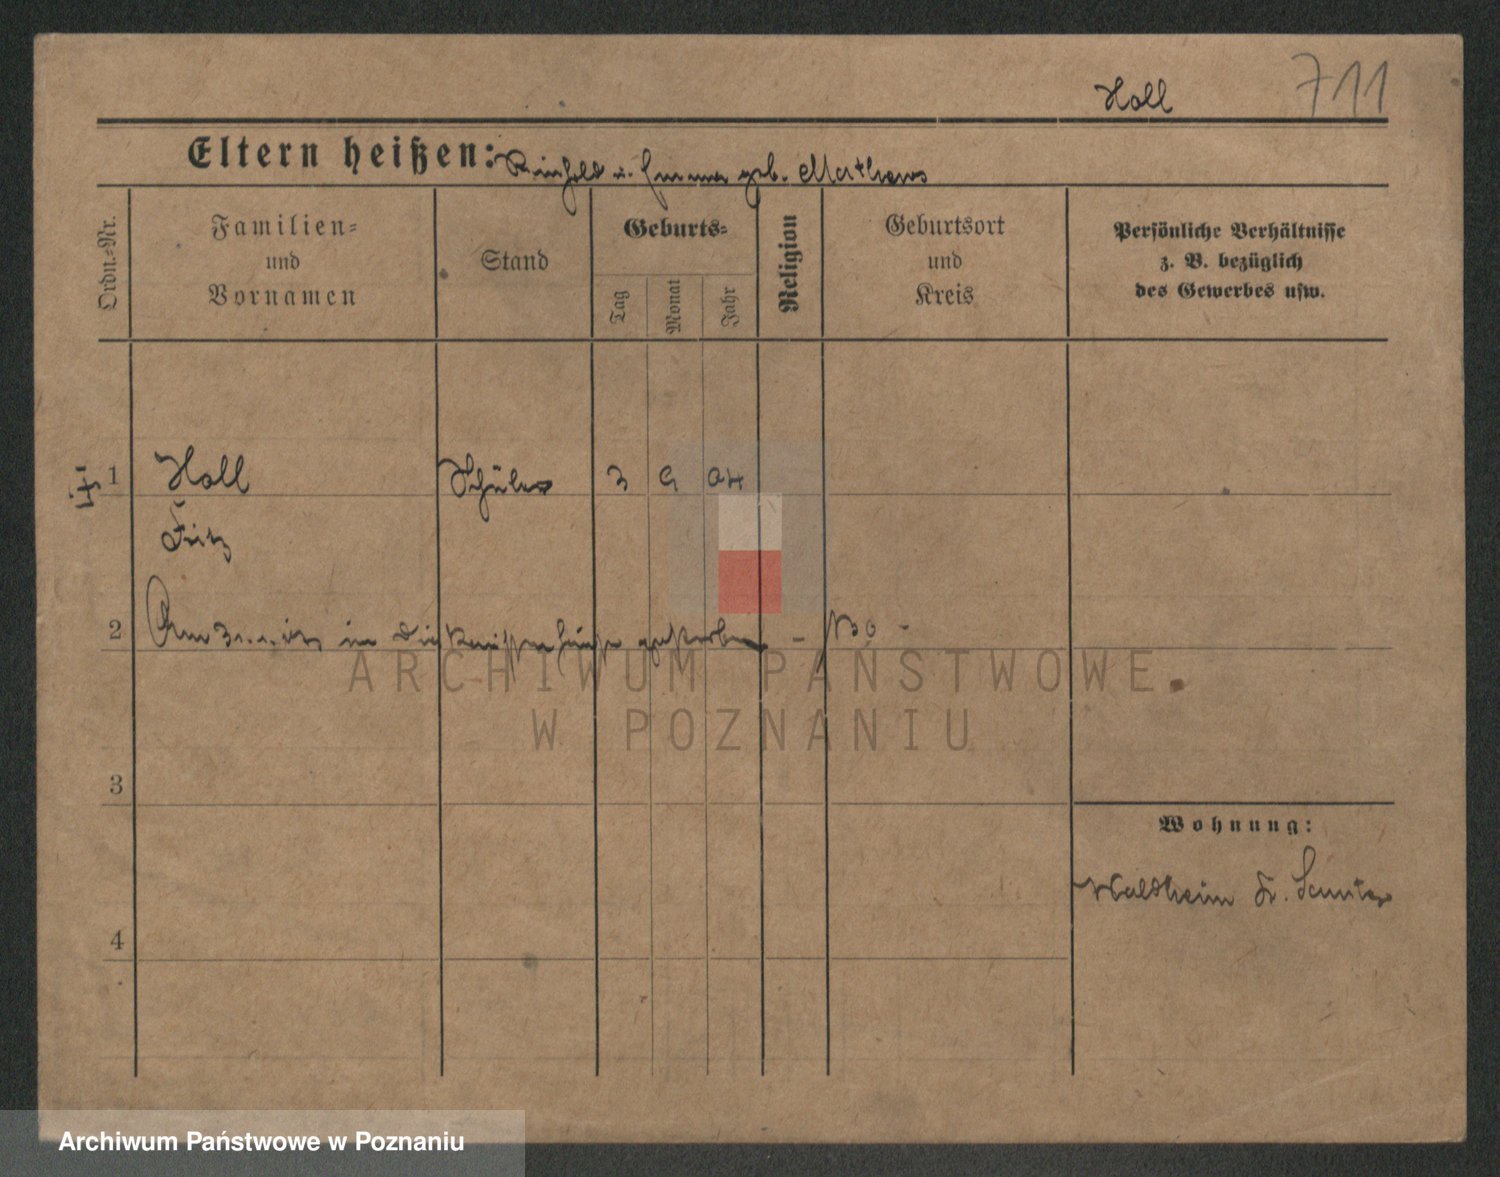 Holl 711
Eltern heißen: Reinhold u. Emma geb. Mathews
Ordn.-Nr.
Familien-
und
Vornamen
Stand
Geburts-
Tag
Monat
Jahr
Religion
Geburtsort
und
Kreis
Persönliche Verhältnisse
z. B. bezüglich
des Gewerbes usw.
1 Holl Schüler 3 9 04
Fritz
2 in
3
Wohnung:
Waldheim Kr. Samter
4
ARCHIWUM PAŃSTWOWE
W POZNANIU
Archiwum Państwowe w Poznaniu